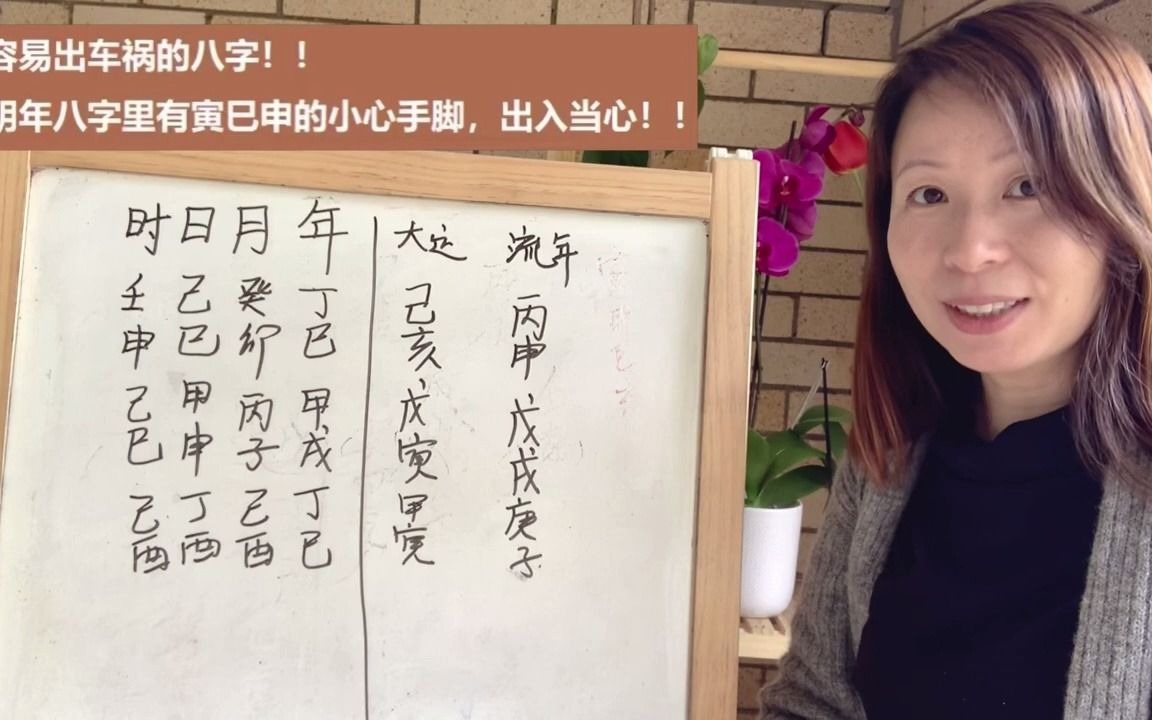 容易出车祸的八字！！
明年八字里有寅巳申的小心手脚，出入当心！！
时 日 月 年 大运 流年
壬 己 癸 丁 己 丙
申 巳 卯 巳 亥 申
己 甲 丙 甲 戊 戊
巳 申 子 戌 寅 戌
己 丁 己 丁 甲 庚
酉 酉 酉 巳 寅 子